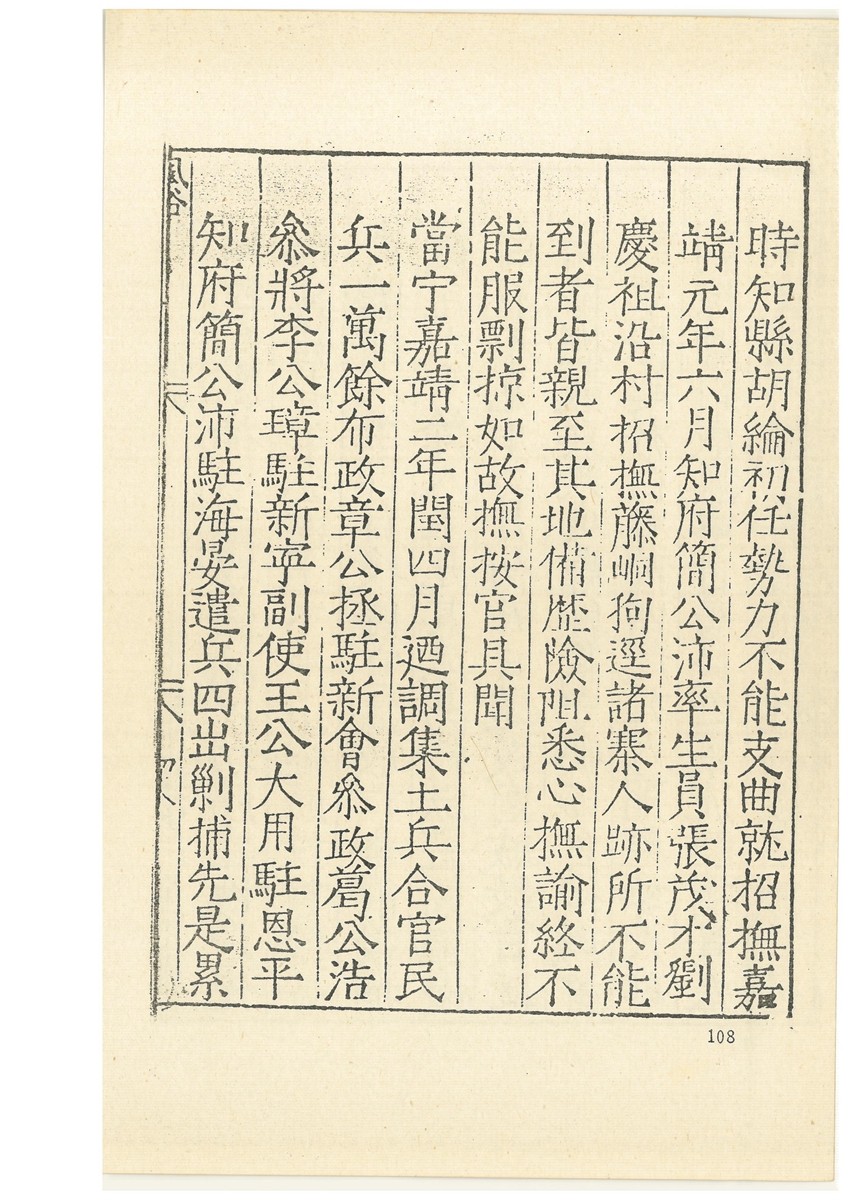 時知縣胡綸初任勢力不能支曲就招撫嘉
靖元年六月知府簡公沛率生員張茂才劉
慶祖沿村招撫藤峒狗逕諸寨人跡所不能
到者皆親至其地備歷險阻悉心撫諭終不
能服剽掠如故撫按官具聞
當宁嘉靖二年閏四月迺調集土兵合官民
兵一萬餘布政章公拯駐新會叅政葛公浩
叅將李公璋駐新寧副使王公大用駐恩平
知府簡公沛駐海晏遣兵四出剿捕先是累
風俗
108